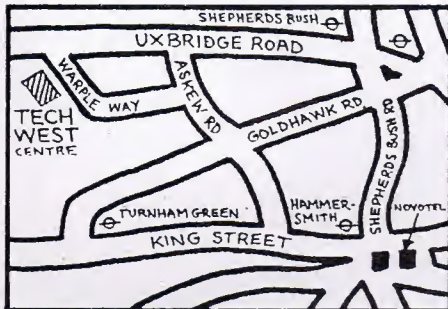 SHEPHERDS BUSH
UXBRIDGE ROAD
WARPLE WAY
ASKEW RD
TECH
WEST
CENTRE
GOLDHAWK RD
SHEPHERDS BUSH RD
TURNHAM GREEN
HAMMER-
SMITH
NOVOTEL
KING STREET